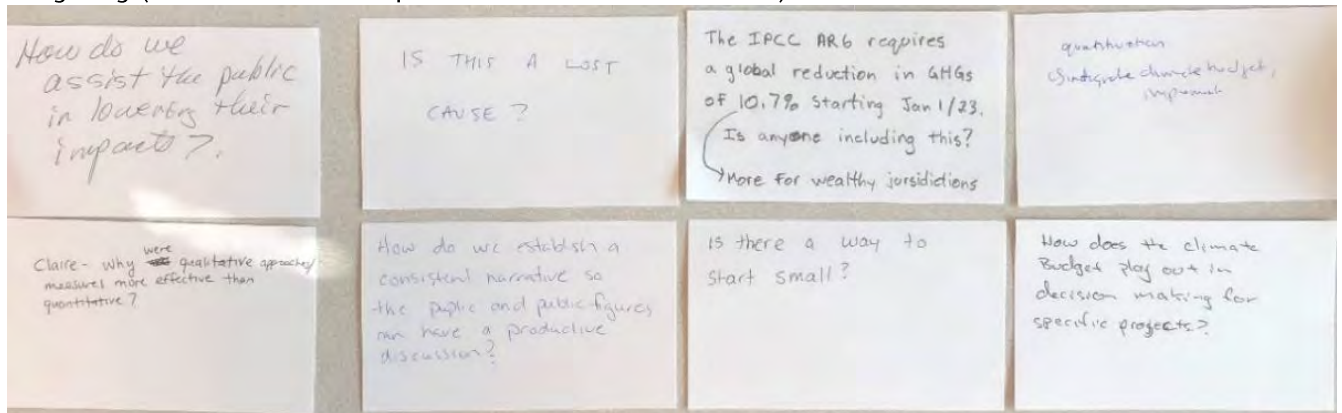 How do we
assist the public
in lowering their
impacts?.
IS THIS A LOST
CAUSE ?
The IPCC AR6 requires
a global reduction in GHGs
of 10.7% starting Jan 1/23.
Is anyone including this?
More for wealthy jorsidictions
quantification
climate budget,
Claire - why were qualitative approaches/
measures more effective than
quantitative?
How do we establish a
consistent narrative so
the public and public figures
can have a productive
discussion?
Is there a way to
start small?
How does the climate
Budget play out in
decision making for
specific projects?